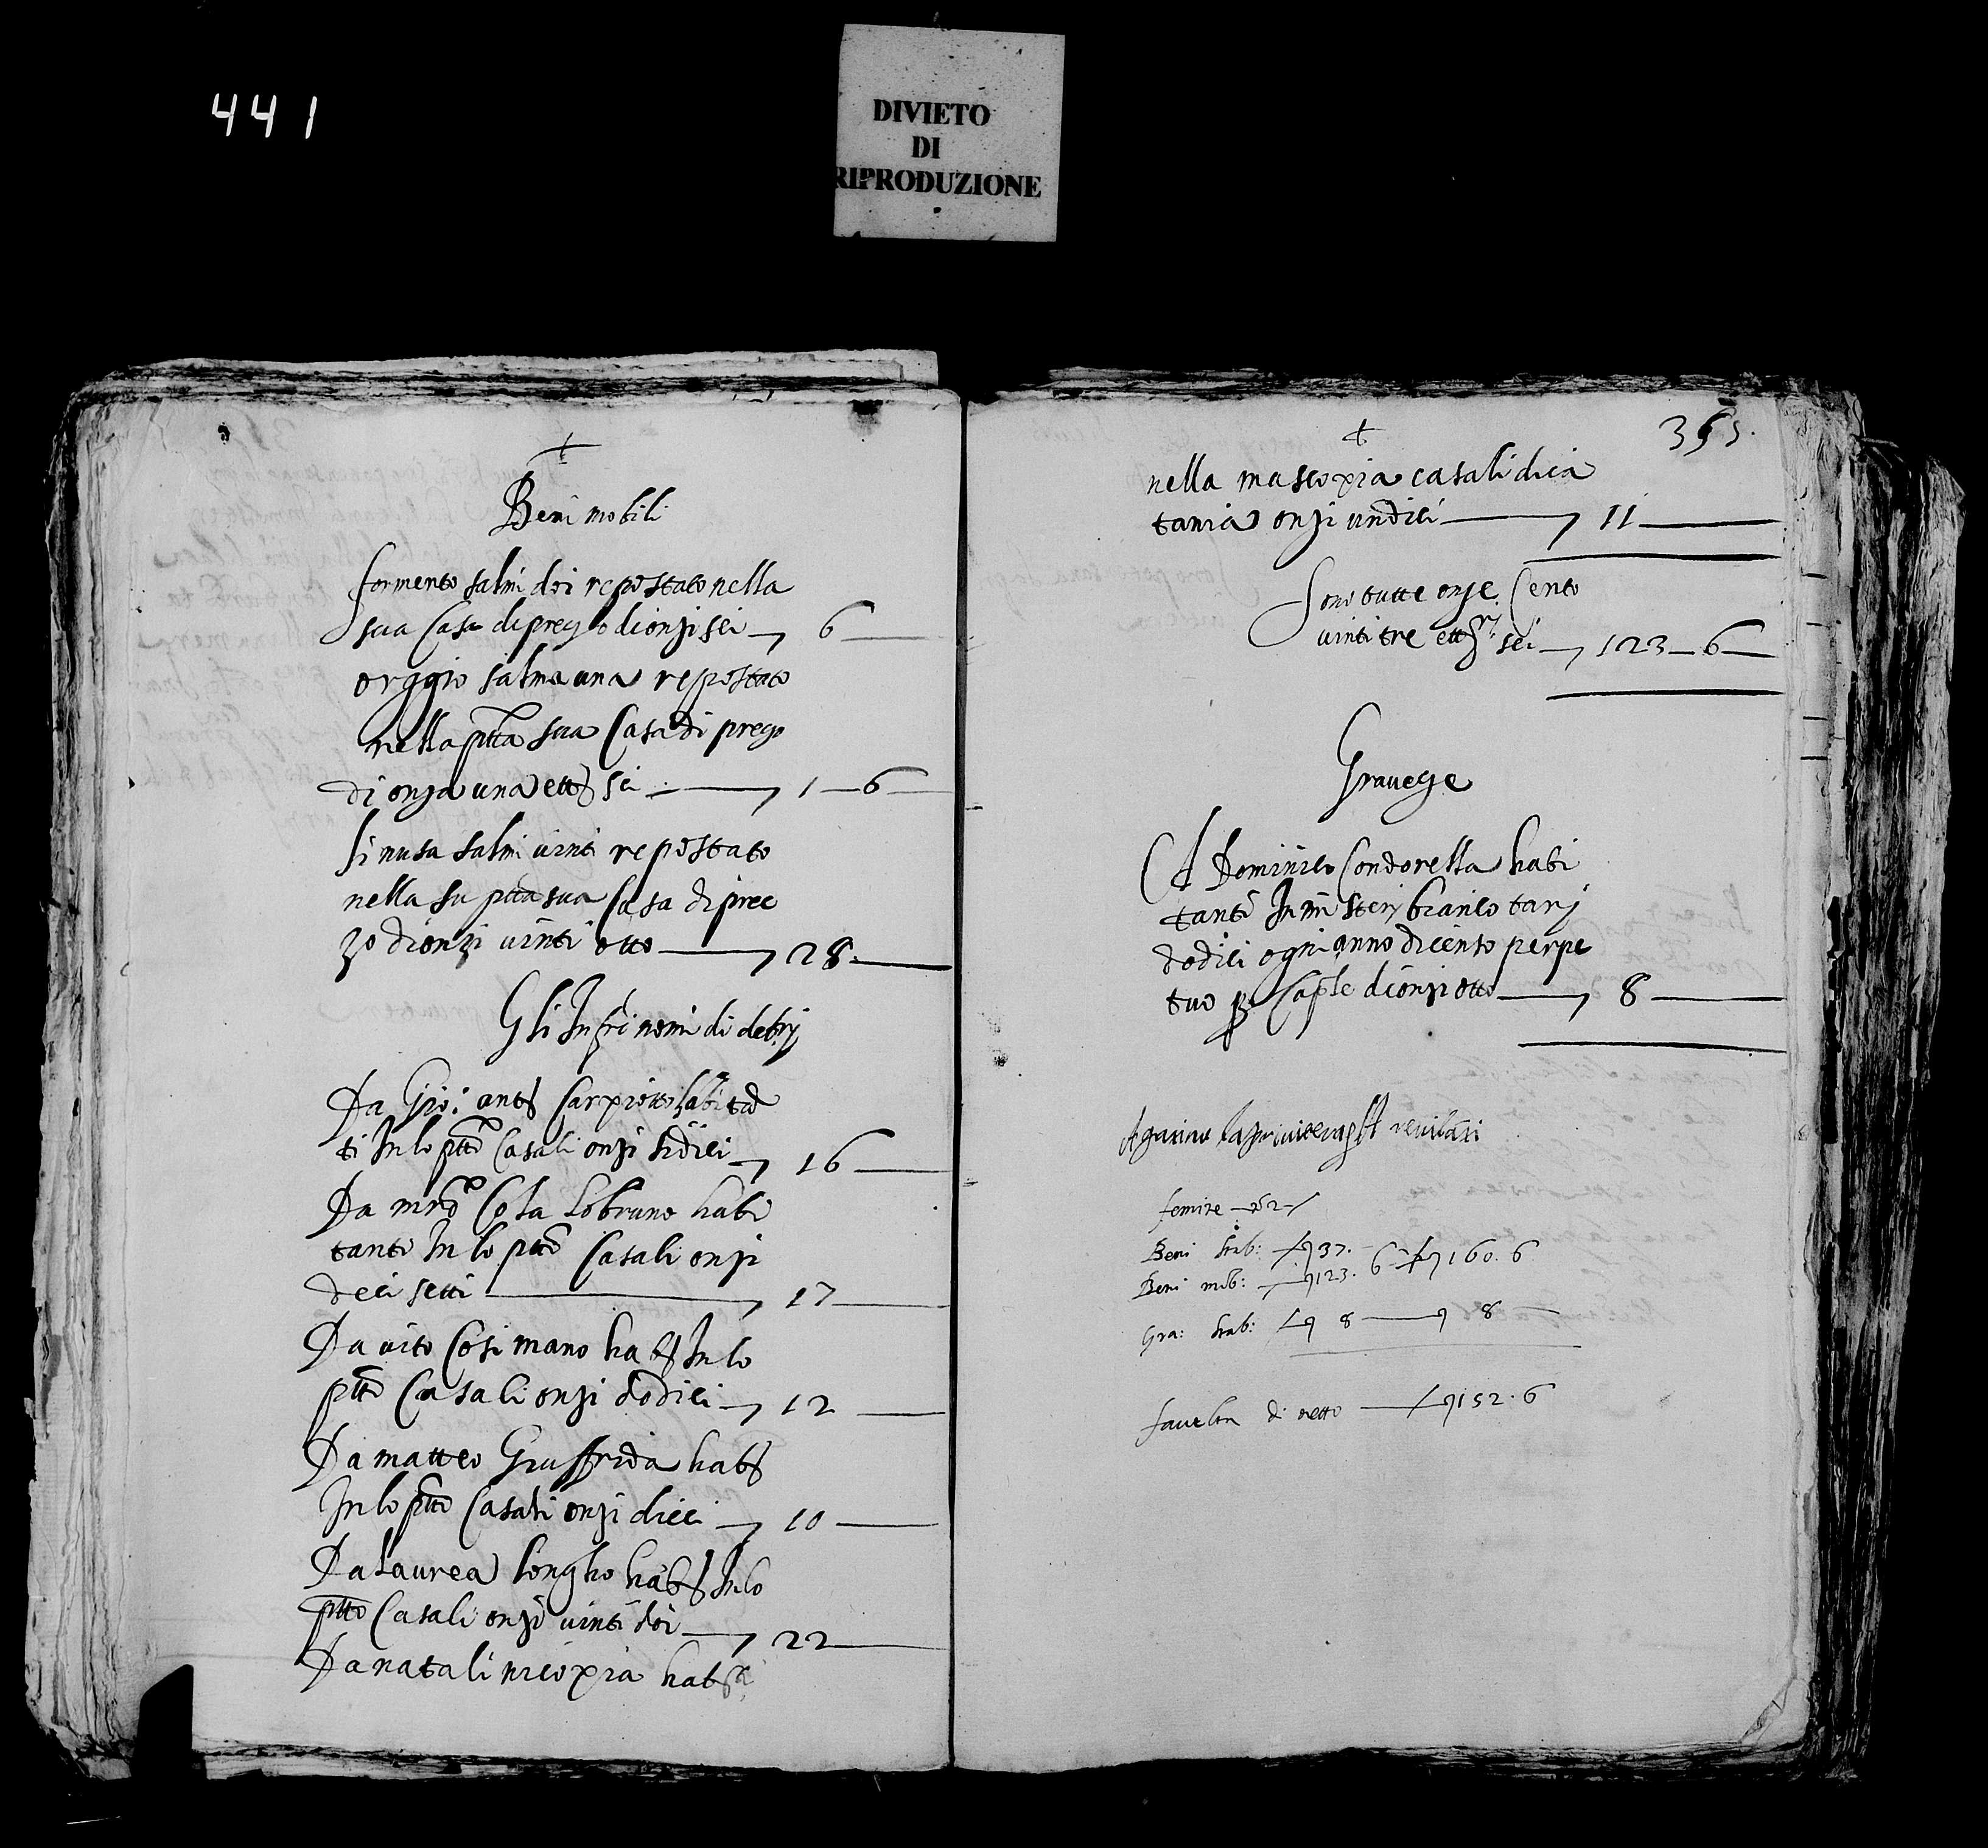 441
DIVIETO
DI
RIPRODUZIONE
Beni mobili
formento salmi doi repostato nella
sua Casa di prezzo di onzi sei 6
orggio salma una repostato
nella ptta sua Casa di prezo
di onza una ett sei 1 6
linusa salmi vinti repostato
nella su ptta sua Casa di prec
zo di onzi vinti otto 28
Gli Infri nomi di debij
Da Gio: ant Carpiotto habitan
ti In lo ptto Casali onzi sidici 16
Da mro Cola Lobruno habi
tanti In lo ptto Casali onzi
deci setti 17
Da vito Cosimano hab In lo
ptto Casali onzi dodici 12
Da matteo Giuffrida hab
In lo ptto Casali onzi dieci 10
Da Laurea Longho hab In lo
ptto Casali onzi vinti doi 22
Da natali nicoxia hab
355.
nella muscoxia casali di ca
tania onzi undici 11
Sono tutte onse Cento
vinti tre ett sei 123 6
Gravezze
A Dominico Condorella habi
tanti In misterj bianco tarj
dodici ogni anno di cento perpe
tuo p Caple di onzi otto 8
revilari
Beni stab: 37.
Beni mob: 123. 6 160. 6
Gra: stab: 8 8
di netto 152. 6